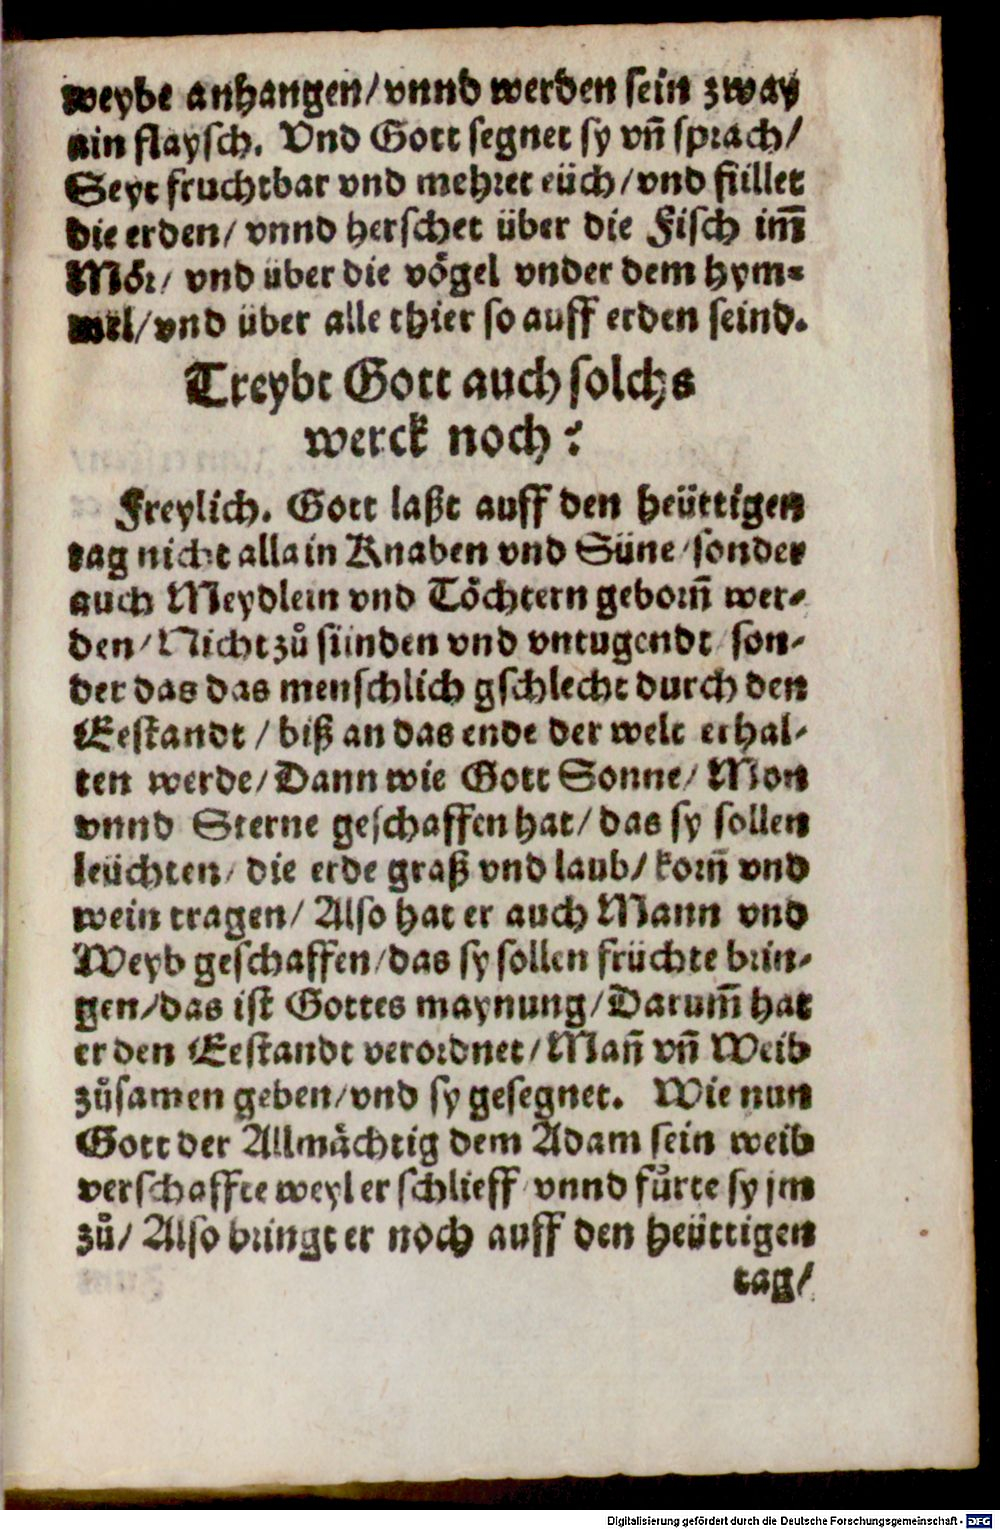 weybe anhangen/ vnnd werden sein zway
ain flaysch. Vnd Gott segnet sy vñ sprach/
Seyt fruchtbar vnd mehret eüch/ vnd füllet
die erden/ vnnd herschet über die Fisch im̃
Mör/ vnd über die vögel vnder dem hym⸗
mel/ vnd über alle thier so auff erden seind.
Treybt Gott auch solchs
werck noch?
Freylich. Gott laßt auff den heüttigen
tag nicht allain Knaben vnd Süne/ sonder
auch Meydlein vnd Töchtern geborñ wer⸗
den/ Nicht zů sünden vnd vntugendt/ son⸗
der das das menschlich gschlecht durch den
Eestandt/ biß an das ende der welt erhal⸗
ten werde/ Dann wie Gott Sonne/ Mon
vnnd Sterne geschaffen hat/ das sy sollen
leüchten/ die erde graß vnd laub/ korñ vnd
wein tragen/ Also hat er auch Mann vnd
Weyb geschaffen/ das sy sollen früchte brin⸗
gen/ das ist Gottes maynung/ Darum̃ hat
er den Eestandt verordnet/ Mañ vñ Weib
zůsamen geben/ vnd sy gesegnet. Wie nun
Gott der Allmächtig dem Adam sein weib
verschaffte weyl er schlieff/ vnnd fůrte sy jm
zů/ Also bringt er noch auff den heüttigen
tag/
Digitalisierung gefördert durch die Deutsche Forschungsgemeinschaft - DFG